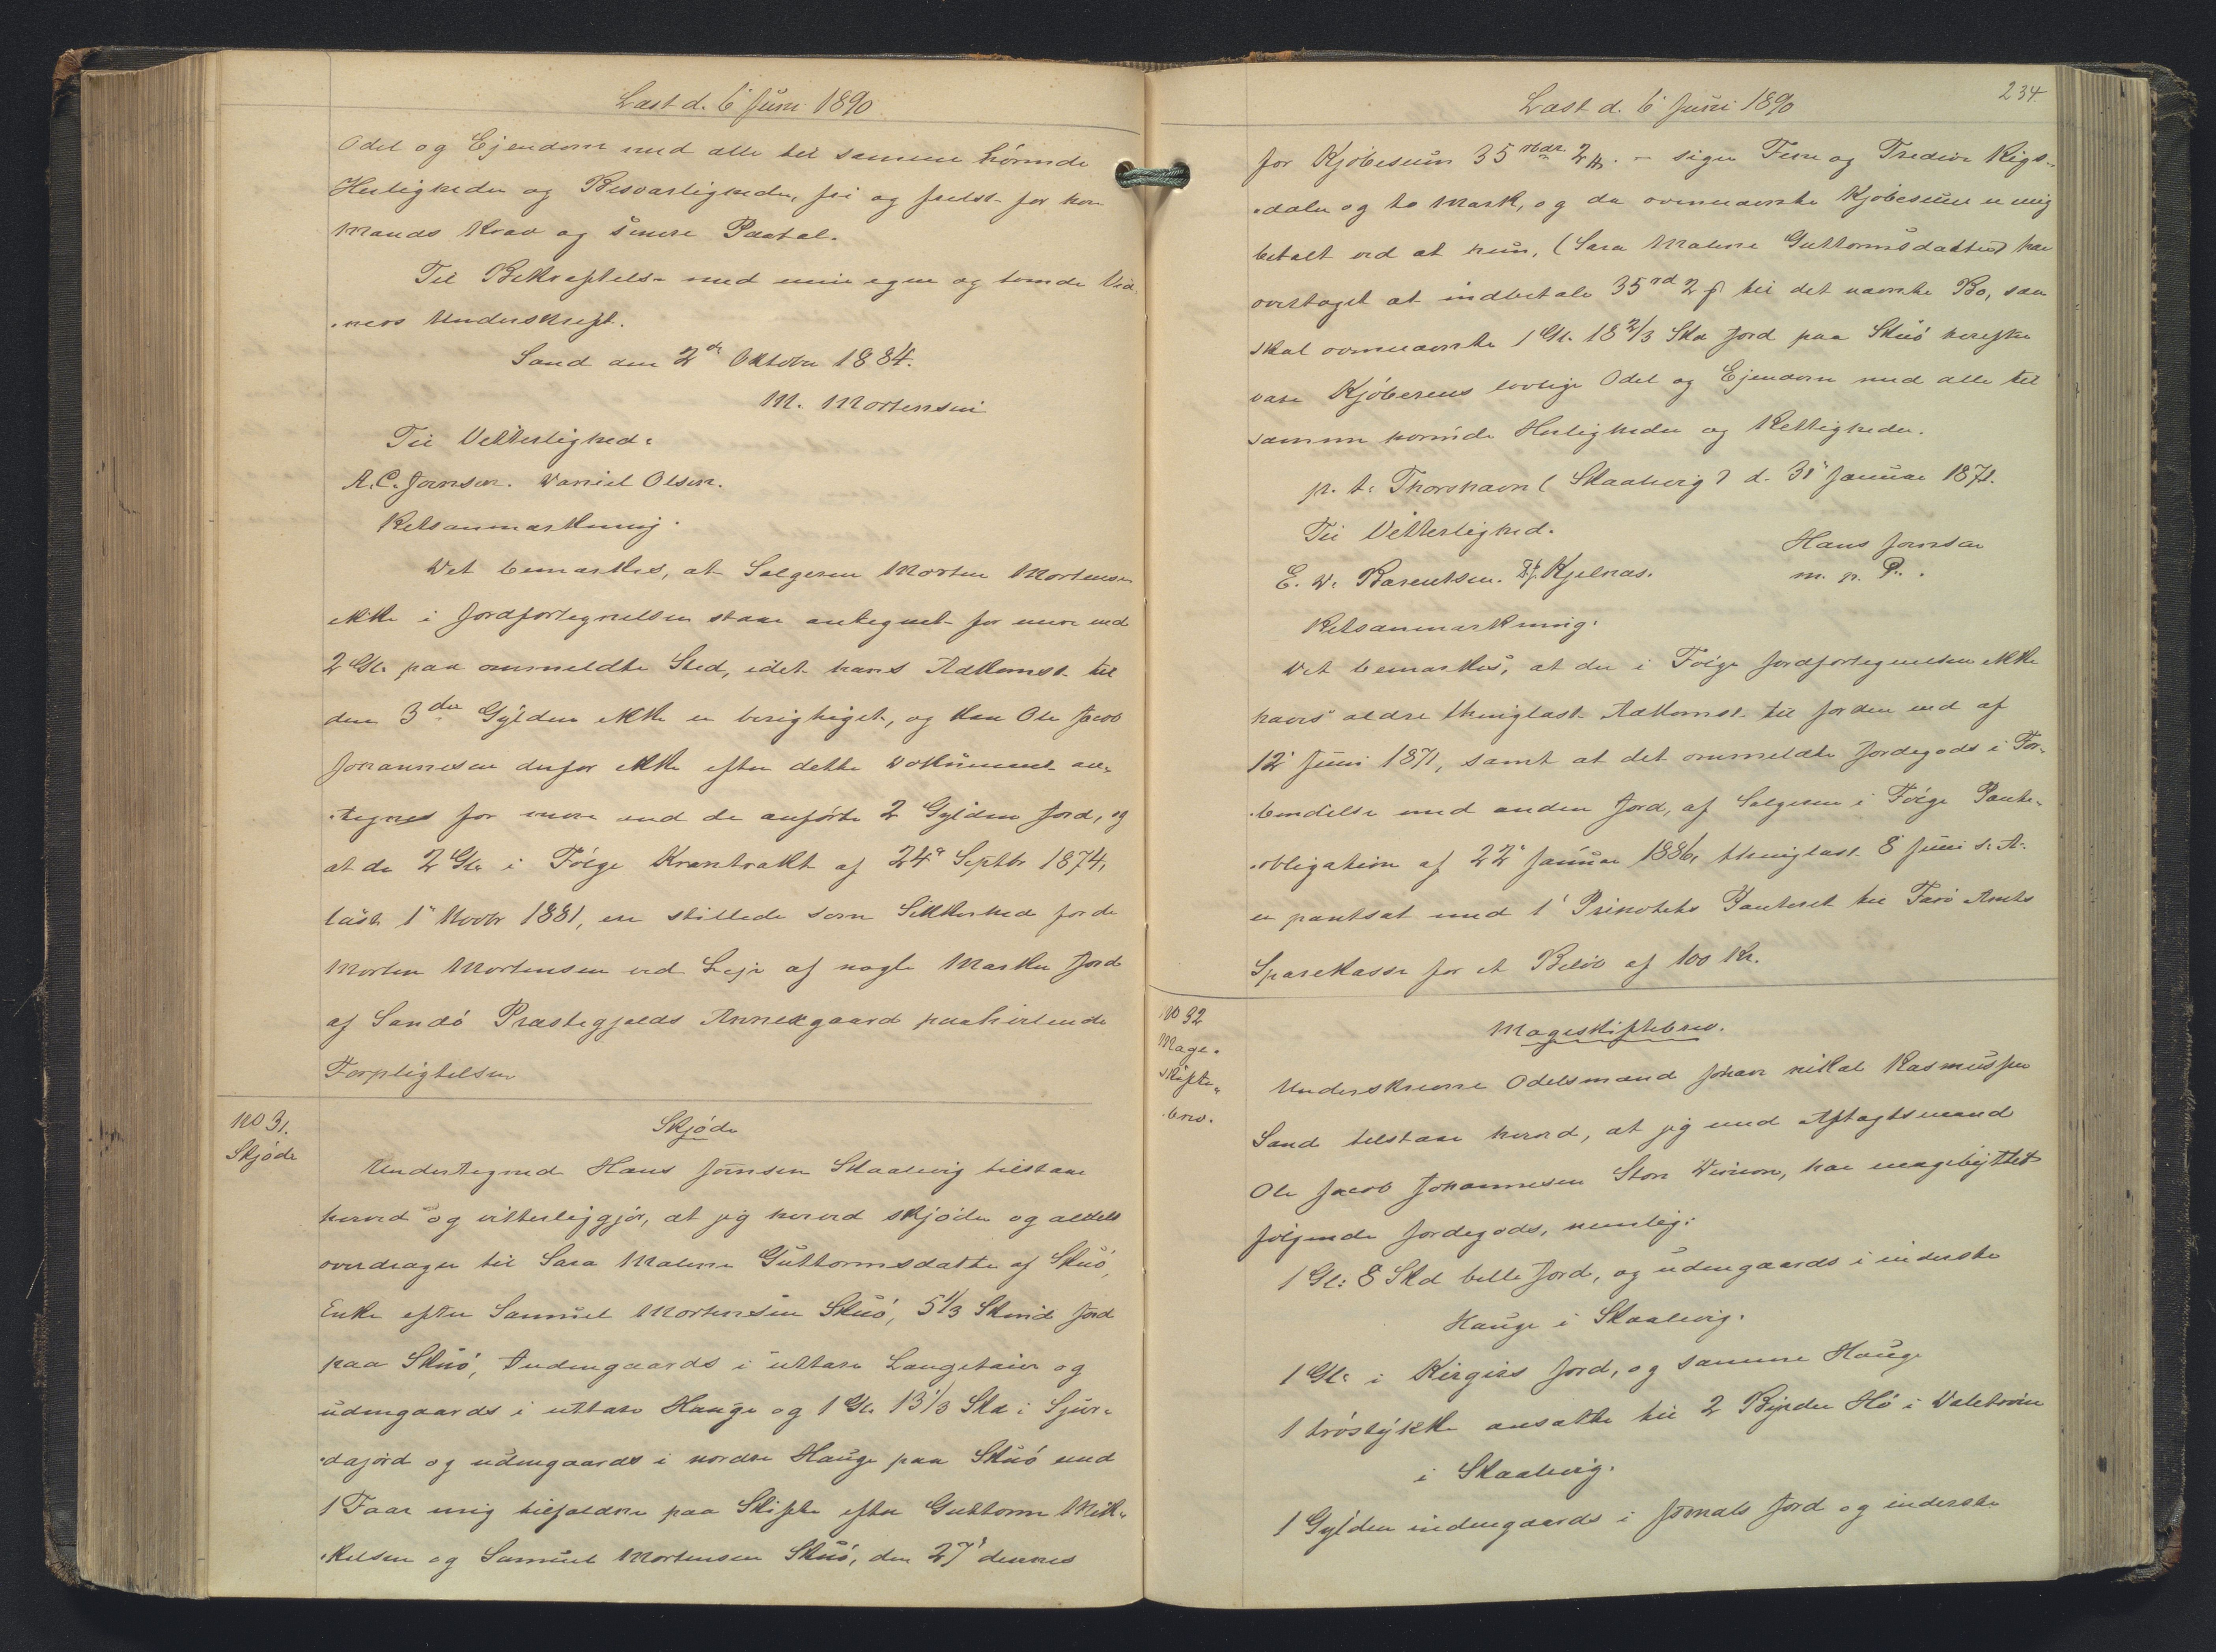 Læst d. 6' Juni 1890
Odel og Ejendom med alle til samme hörende
Herligheder og Besværligheder, fri og frelst for hver
Mands Krav og senere Paatal.
Til Bekræftelse med min egen og tvende Vid-
-ners Underskrift.
Sand den 2de Oktober 1884.
M. Mortensen
Til Vitterlighed:
A. C. Joensen. Daniel Olsen.
Retsanmærkning.
Det bemærkes, at Sælgeren Morten Mortensen
ikke i Jordfortegnelsen staar antegnet for mere end
2 Gl. paa ommeldte Sted, idet hans Adkomst til
den 3die Gylden ikke er berigtiget, og kan Ole Jacob
Johannesen derfor ikke efter dette Dokument an-
-tegnes for mere end de anförte 2 Gylden Jord, og
at de 2 Gl. i Fölge Kontrakt af 24' Septbr 1874,
læst 1' Novbr 1881, er stillede som Sikkerhed for de
Morten Mortensen ved Leje af nogle Marker Jord
af Sandö Præstegjælds Annexgaard paahvilende
Forpligtelser
No 31.
Skjöde
Skjöde
Undertegned Hans Joensen Skaalevig tilstaar
herved og vitterliggjör, at jeg herved skjöder og aldeles
overdrager til Sara Malene Guttormsdatter af Skuö,
Enke efter Samuel Mortensen Skuö, 5 1/3 Skind Jord
paa Skuö, indengaards i uttare Langetaier og
udengaards i uttare Hauge og 1 Gl. 13 1/3 Skd i Sjur-
-dajord og udengaards i nordre Hauge paa Skuö med
1 Faar mig tilfaldne paa Skifte efter Guttorm Mik-
-kelsen og Samuel Mortensen Skuö, den 27' dennes
234
Læst d. 6' Juni 1890
for Kjöbesum 35 rbdr 2 #. - siger Fem og Tredive Rigs-
-daler og to Mark, og da ovennævnte Kjöbesum er mig
betalt ved at hun, (Sara Malene Guttormsdatter) har
overtaget at indbetale 35 rd 2 # til det nævnte Bo, saa
skal ovennævnte 1 Gl. 18 2/3 Skd Jord paa Skuö herefter
være Kjöberens lovlige Odel og Ejendom med alle til
samme hörende Herligheder og Rettigheder.
p. t. Thorshavn (Skaalevig) d. 31' Januar 1871.
Til Vitterlighed.
Hans Joensen
E. W. Barentsen. D. J. Kjelnæs.
m. p. P.
Retsanmærkning.
Det bemærkes, at der i Fölge Jordfortegnelsen ikke
haves ældre thinglæst Adkomst til Jorden end af
12' Juni 1871, samt at det ommeldte Jordegods i For-
-bindelse med anden Jord, af Sælgeren i Fölge Pante-
-obligation af 22' Januar 1886, thinglæst 8' Juni s. A.
er pantsat med 1' Prioritets Panteret til Færö Amts
Sparekasse for et Belöb af 100 Kr.
No 32
Mage-
skifte-
-brev.
Mageskiftebrev.
Underskrevne Odelsmand Johan Nikal Rasmussen
Sand tilstaar herved, at jeg med Aftægtsmand
Ole Jacob Johannesen Store Dimon, har magebyttet
fölgende Jordegods, nemlig:
1 Gl. 8 Skd belle Jord, og udengaards i inderste
Hauge i Skaalevig.
1 Gl. i Kirgies Jord, og samme Hauge
1 tröstykke ansatte til 2 Byrder Hö i Dalström
i Skaalevig.
1 Gylden indengaards i Jomals Jord og inderste